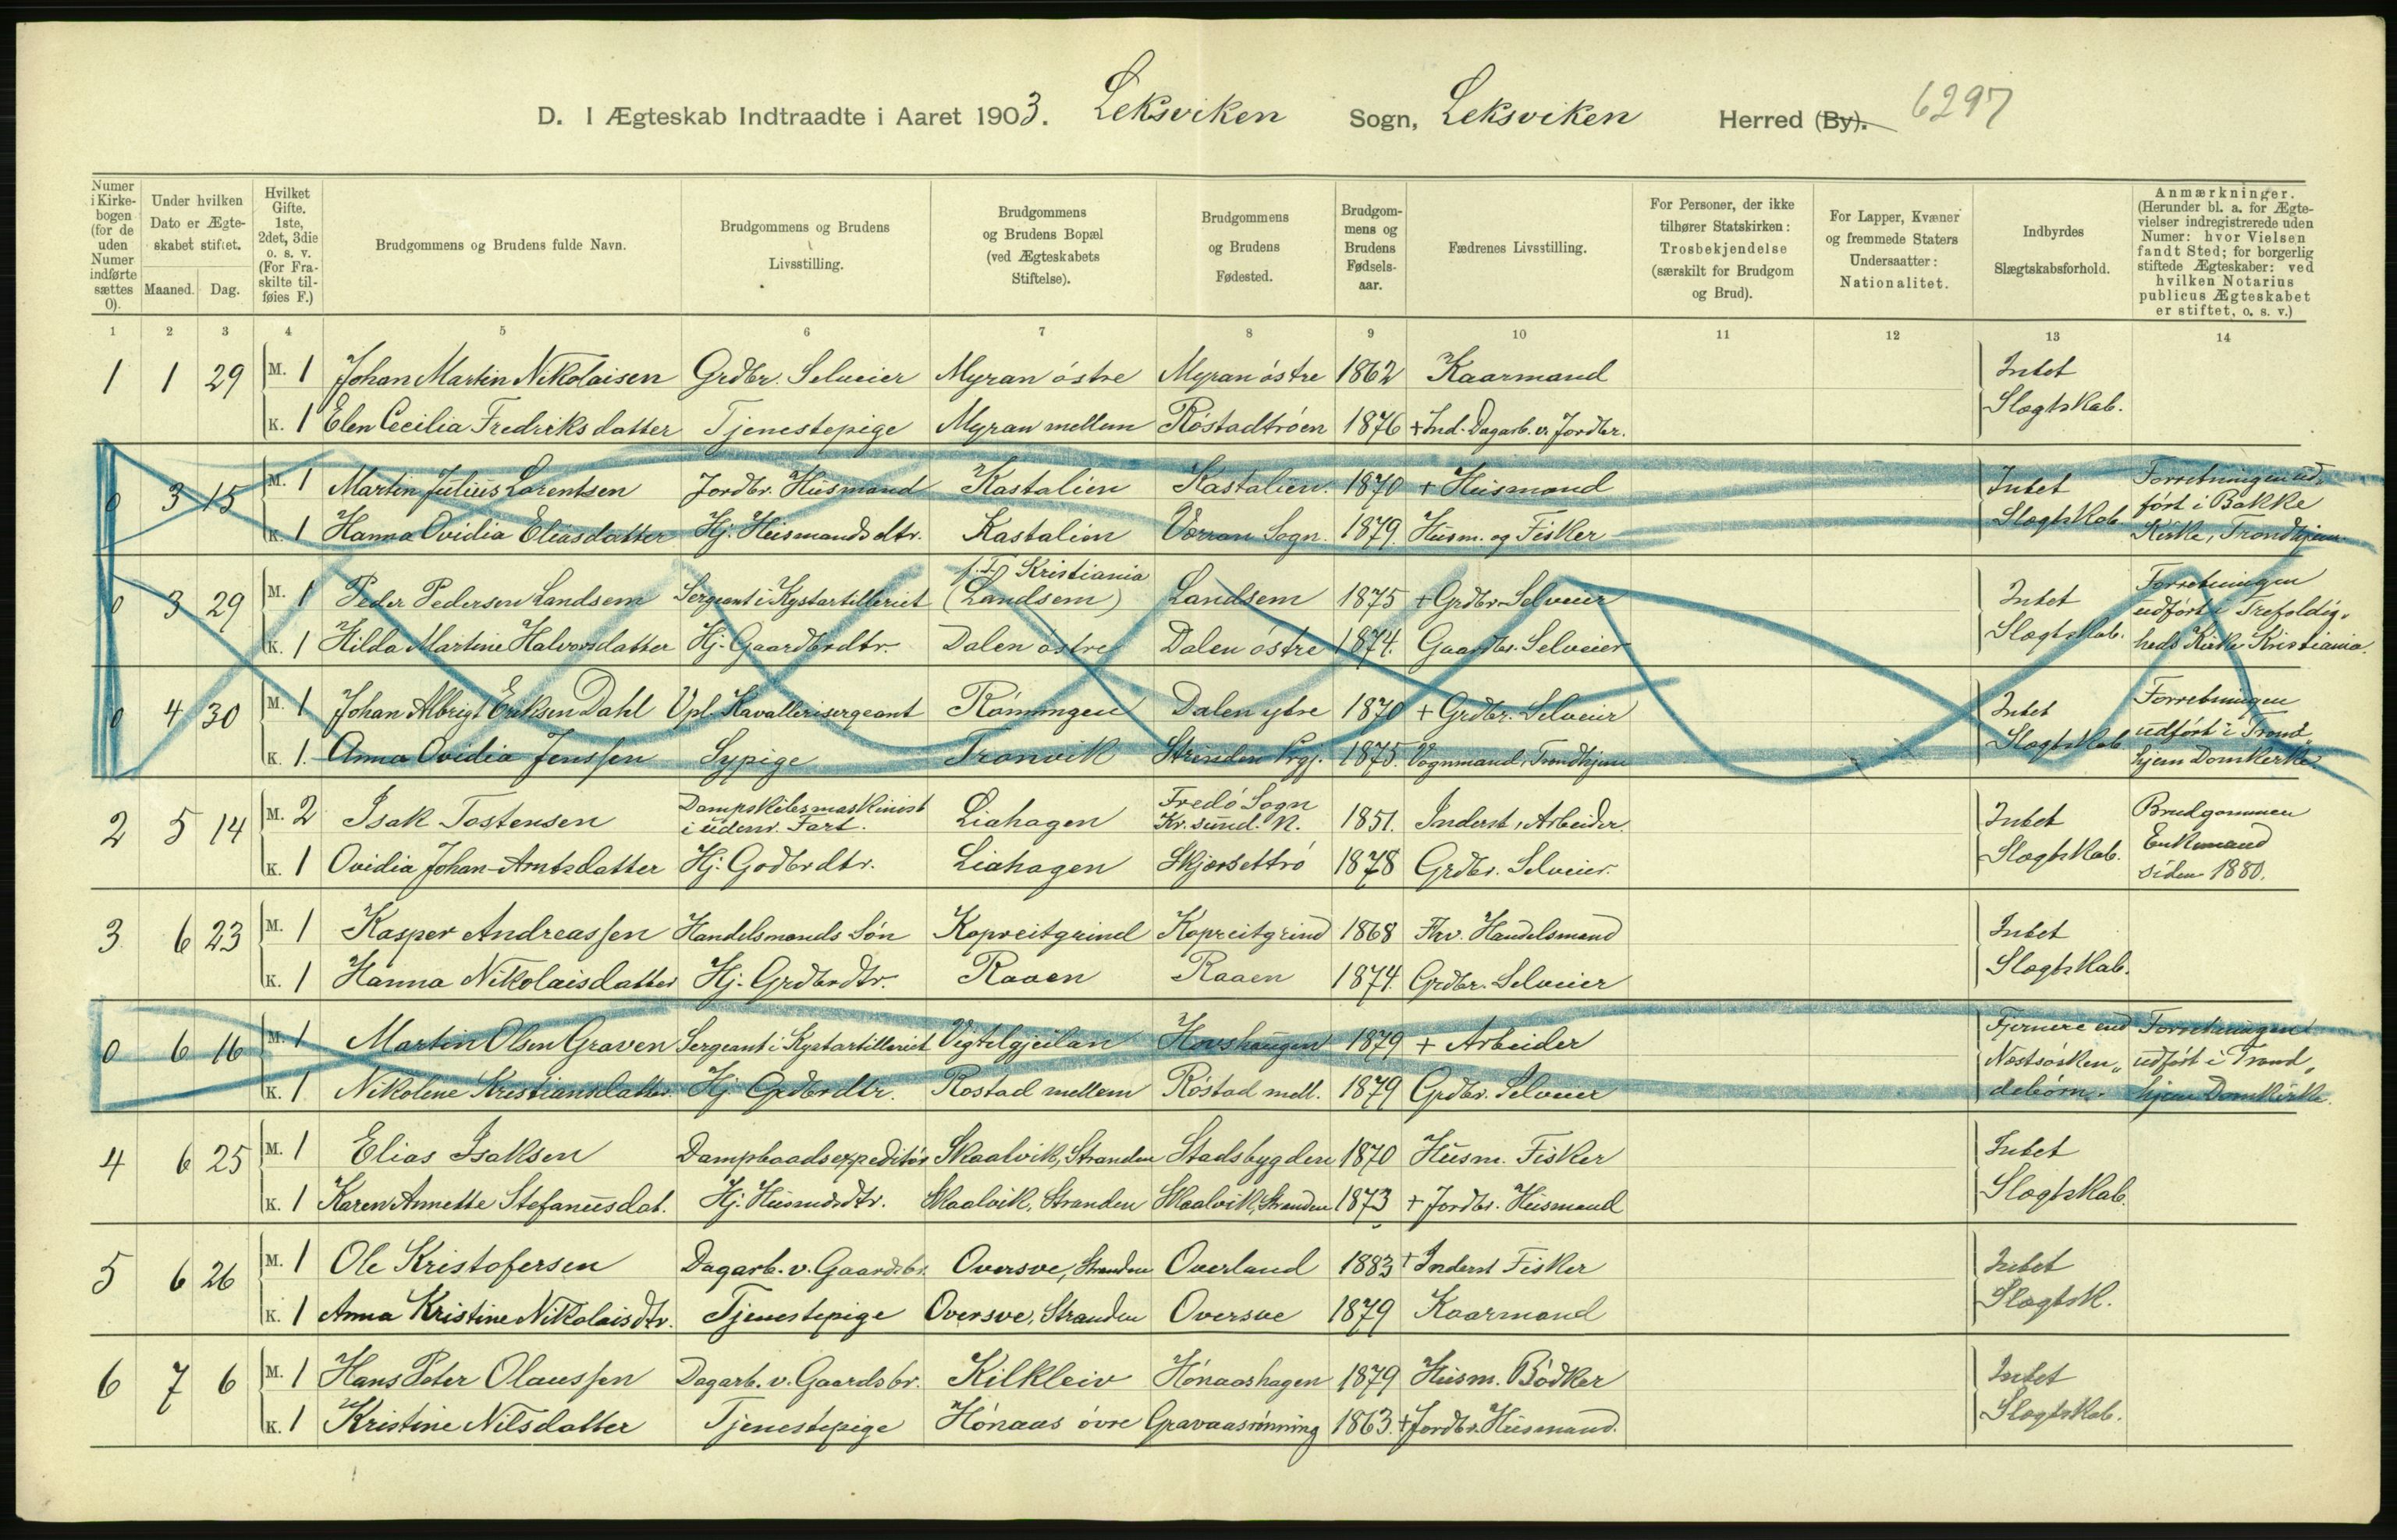 D. I Ægteskab Indtraadte i Aaret 1903. Leksviken Sogn, Leksviken Herred (By). 6297
Numer i Kirkebogen (for de uden Numer indførte sættes 0).
Under hvilken Dato er Ægteskabet stiftet.
Maaned. Dag.
Hvilket Gifte. 1ste, 2det, 3die o. s. v. (For Fraskilte tilføies F.)
Brudgommens og Brudens fulde Navn.
Brudgommens og Brudens Livsstilling.
Brudgommens og Brudens Bopæl (ved Ægteskabets Stiftelse).
Brudgommens og Brudens Fødested.
Brudgommens og Brudens Fødselsaar.
Fædrenes Livsstilling.
For Personer, der ikke tilhører Statskirken: Trosbekjendelse (særskilt for Brudgom og Brud).
For Lapper, Kvæner og fremmede Staters Undersaatter: Nationalitet.
Indbyrdes Slægtskabsforhold.
Anmærkninger. (Herunder bl. a. for Ægtevielser indregistrerede uden Numer: hvor Vielsen fandt Sted; for borgerlig stiftede Ægteskaber: ved hvilken Notarius publicus Ægteskabet er stiftet, o. s. v.)
1 2 3 4 5 6 7 8 9 10 11 12 13 14
1 1 29 M. 1 Johan Martin Nikolaisen Grdbr. Selveier Myran östre Myran östre 1862 Kaarmand Intet
K. 1 Elen Cecilia Fredriksdatter Tjenestepige Myran mellem Röstadtröen 1876 + Ind. Dagarb. v. Jordbr. Slægtskab.
0 3 15 M. 1 Martin Julius Lorentsen Jordbr. Husmand Kastalien Kastalien. 1870 + Husmand Intet Forretningen ud-
fört i Bakke
K. 1 Hanna Ovidia Eliasdatter Hj. Husmandsdtr. Kastalien Værran Sogn. 1879. Husm. og Fisker Slægtskab Kirke, Trondhjem
0 3 29 M. 1 Peder Pedersen Landsem Sergeant i Kystartilleriet f. T. Kristiania (Landsem) Landsem 1875 + Grdbr. Selveier Intet Forretningen
udfört i Trefoldig-
K. 1 Hilda Martine Halvorsdatter Hj. Gaardbrdtr. Dalen östre Dalen östre 1874. Gaardbr. Selveier Slægtskab. heds Kirke Kristiania.
0 4 30 M. 1 Johan Albrigt Eriksen Dahl Vpl. Kavallerisergeant Römmingen Dalen ytre 1870 + Grdbr. Selveier Intet Forretningen
udfört i Trond-
K. 1. Anna Ovidia Jenssen Sypige Tronvik Strinden Prgj. 1875. Vognmand, Trondhjem Slægtskab hjem Domkirke.
2 5 14 M. 2 Isak Tostensen Dampskibsmaskinist i udenr. Fart. Liahagen Fredö Sogn Kr.sund. N. 1851. Inderst, Arbeider. Intet Brudgommen
Enkemand
K. 1 Ovidia Johan-Arntsdatter Hj. Godbrdtr. Liahagen Skjærsettrö 1878 Grdbr. Selveier. Slægtskab. siden 1880.
3 6 23 M. 1 Kasper Andreassen Handelsmands Sön Kopreitgrind Kopreitgrind 1868 Fhv. Handelsmand Intet
K. 1 Hanna Nikolaisdatter Hj. Grdbrdtr. Raaen Raaen 1874. Grdbr. Selveier Slægtskab.
0 6 16 M. 1 Martin Olsen Graven Sergeant i Kystartilleriet Vigtelgjeilan Hovshaugen 1879 + Arbeider Fjernere end Forretningen
Næstsösken- udfört i Trond-
K. 1 Nikoline Kristiansdatter Hj. Grdbrdtr. Rostad mellem Röstad mell. 1879 Grdbr. Selveier debörn. hjem Domkirke.
4 6 25 M. 1 Elias Isaksen Dampbaadsexpeditör Skaalvik, Stranden Stadsbygden 1870 Husm. Fisker Intet
K. 1 Karen Annette Stefanusdat. Hj. Husmdsdtr. Skaalvik, Stranden Skaalvik, Stranden 1873 + Jordbr. Husmand Slægtskab.
5 6 26 M. 1 Ole Kristofersen Dagarb. v. Gaardsbr. Oversve, Stranden Overland 1883 + Inderst Fisker Intet
K. 1 Anna Kristine Nikolaisdtr. Tjenestepige Oversve, Stranden Oversve 1879 Kaarmand Slægtsk.
6 7 6 M. 1 Hans Peter Olaussen Dagarb. v. Gaardsbr. Kilkleiv Hönaashagen 1879 Husm. Bödker Intet
K. 1 Kristine Nilsdatter Tjenestepige Hönaas övre Gravaasrönning 1863. + Jordbr. Husmand. Slægtskab.